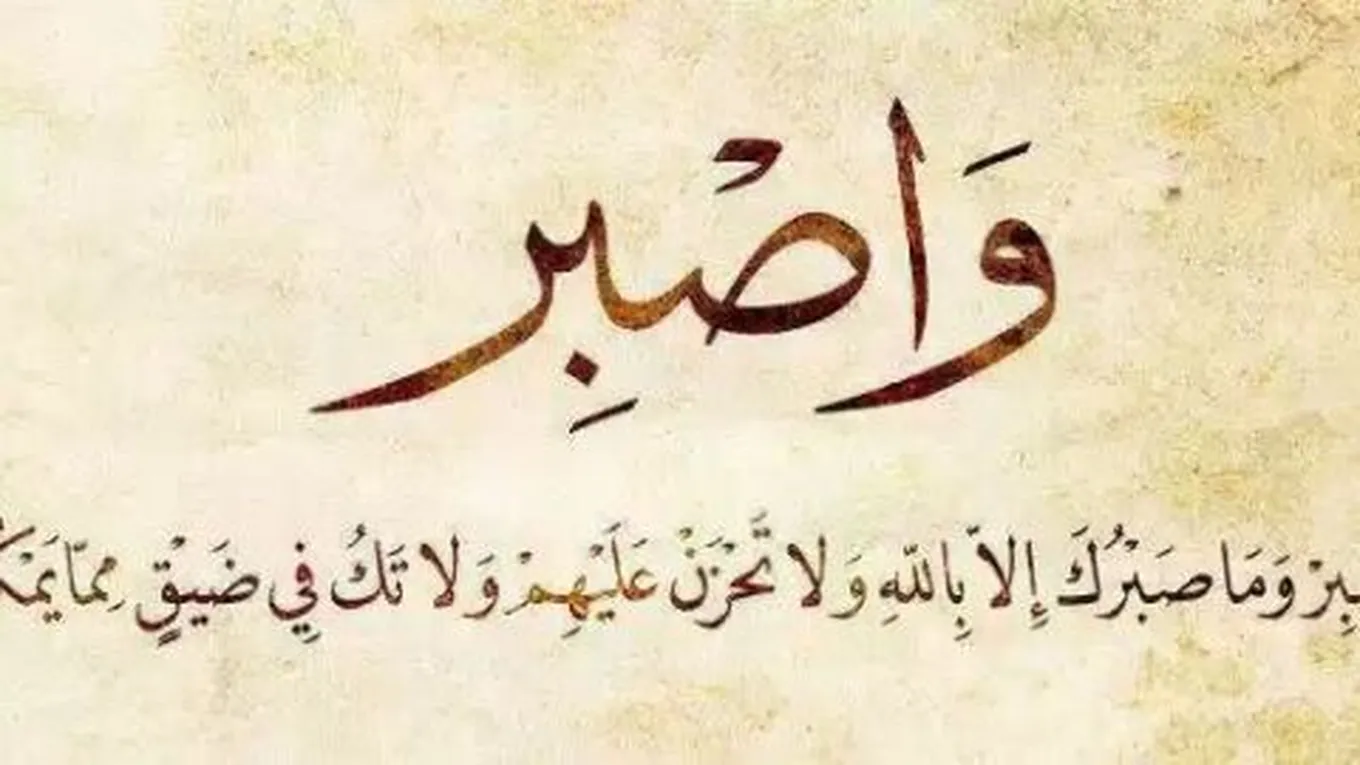 وَاصْبِر
وَمَا صَبْرُكَ إِلاَّ بِاللَّهِ وَلا تَحْزَنْ عَلَيْهِمْ وَلا تَكُ فِي ضَيْقٍ مِمَّا